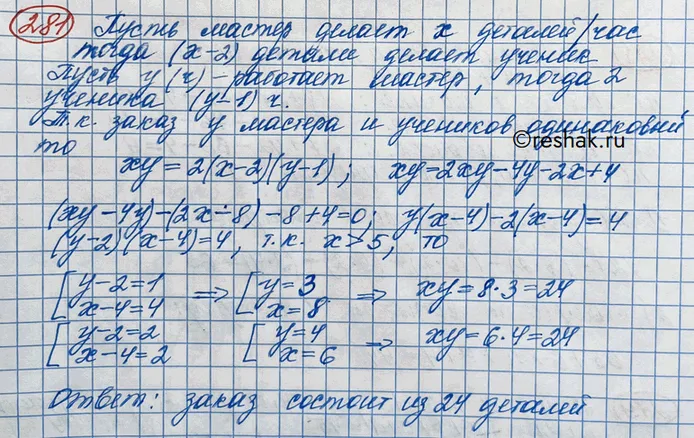 281 Пусть мастер делает x деталей/час
тогда (x-2) детали делает ученик
Пусть y (ч) - работает мастер, тогда 2
ученика (y-1) ч.
Т.к. заказ у мастера и учеников одинаковый
то
©reshak.ru
xy = 2(x-2)(y-1); xy=2xy-4y-2x+4
(xy-4y)-(2x-8)-8+4=0; y(x-4)-2(x-4)=4
(y-2)(x-4)=4, т.к. x>5, то
[y-2=1 => [y=3 => xy=8·3=24
x-4=4 x=8
[y-2=2 [y=4 -> xy=6·4=24
x-4=2 x=6
Ответ: заказ состоит из 24 деталей